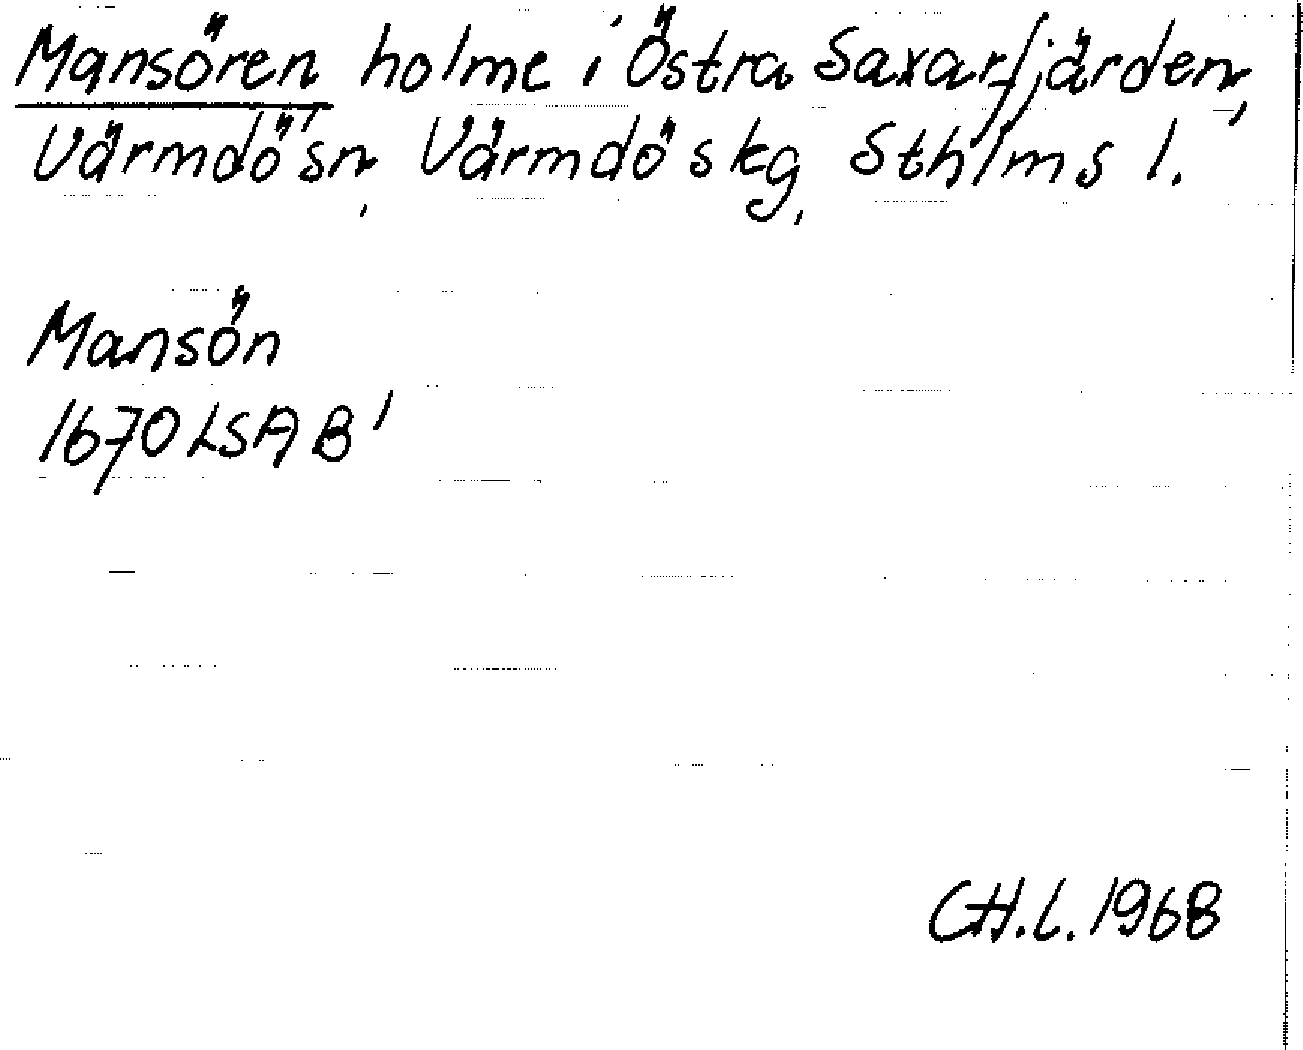 Mansören holme i Östra Saxarfjärden,
Värmdö sn, Värmdö skg, Sthlms l.
Mansön
1670 LSA B1
CH.L. 1968